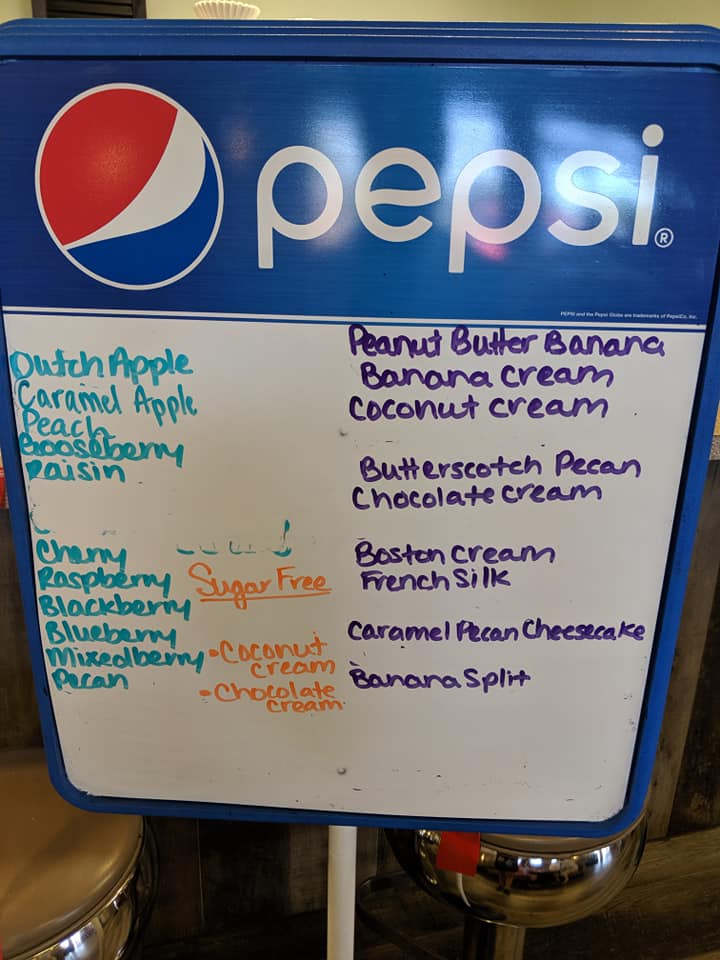 pepsi®
PEPSI and the Pepsi Globe are trademarks of PepsiCo, Inc.
Dutch Apple
Caramel Apple
Peach
Gooseberry
Raisin
Cherry
Raspberry
Blackberry
Blueberry
Mixedberry
Pecan
Sugar Free
•Coconut
cream
•Chocolate
cream
Peanut Butter Banana
Banana cream
Coconut cream
Butterscotch Pecan
Chocolate cream
Boston cream
French Silk
Caramel Pecan Cheesecake
Banana Split